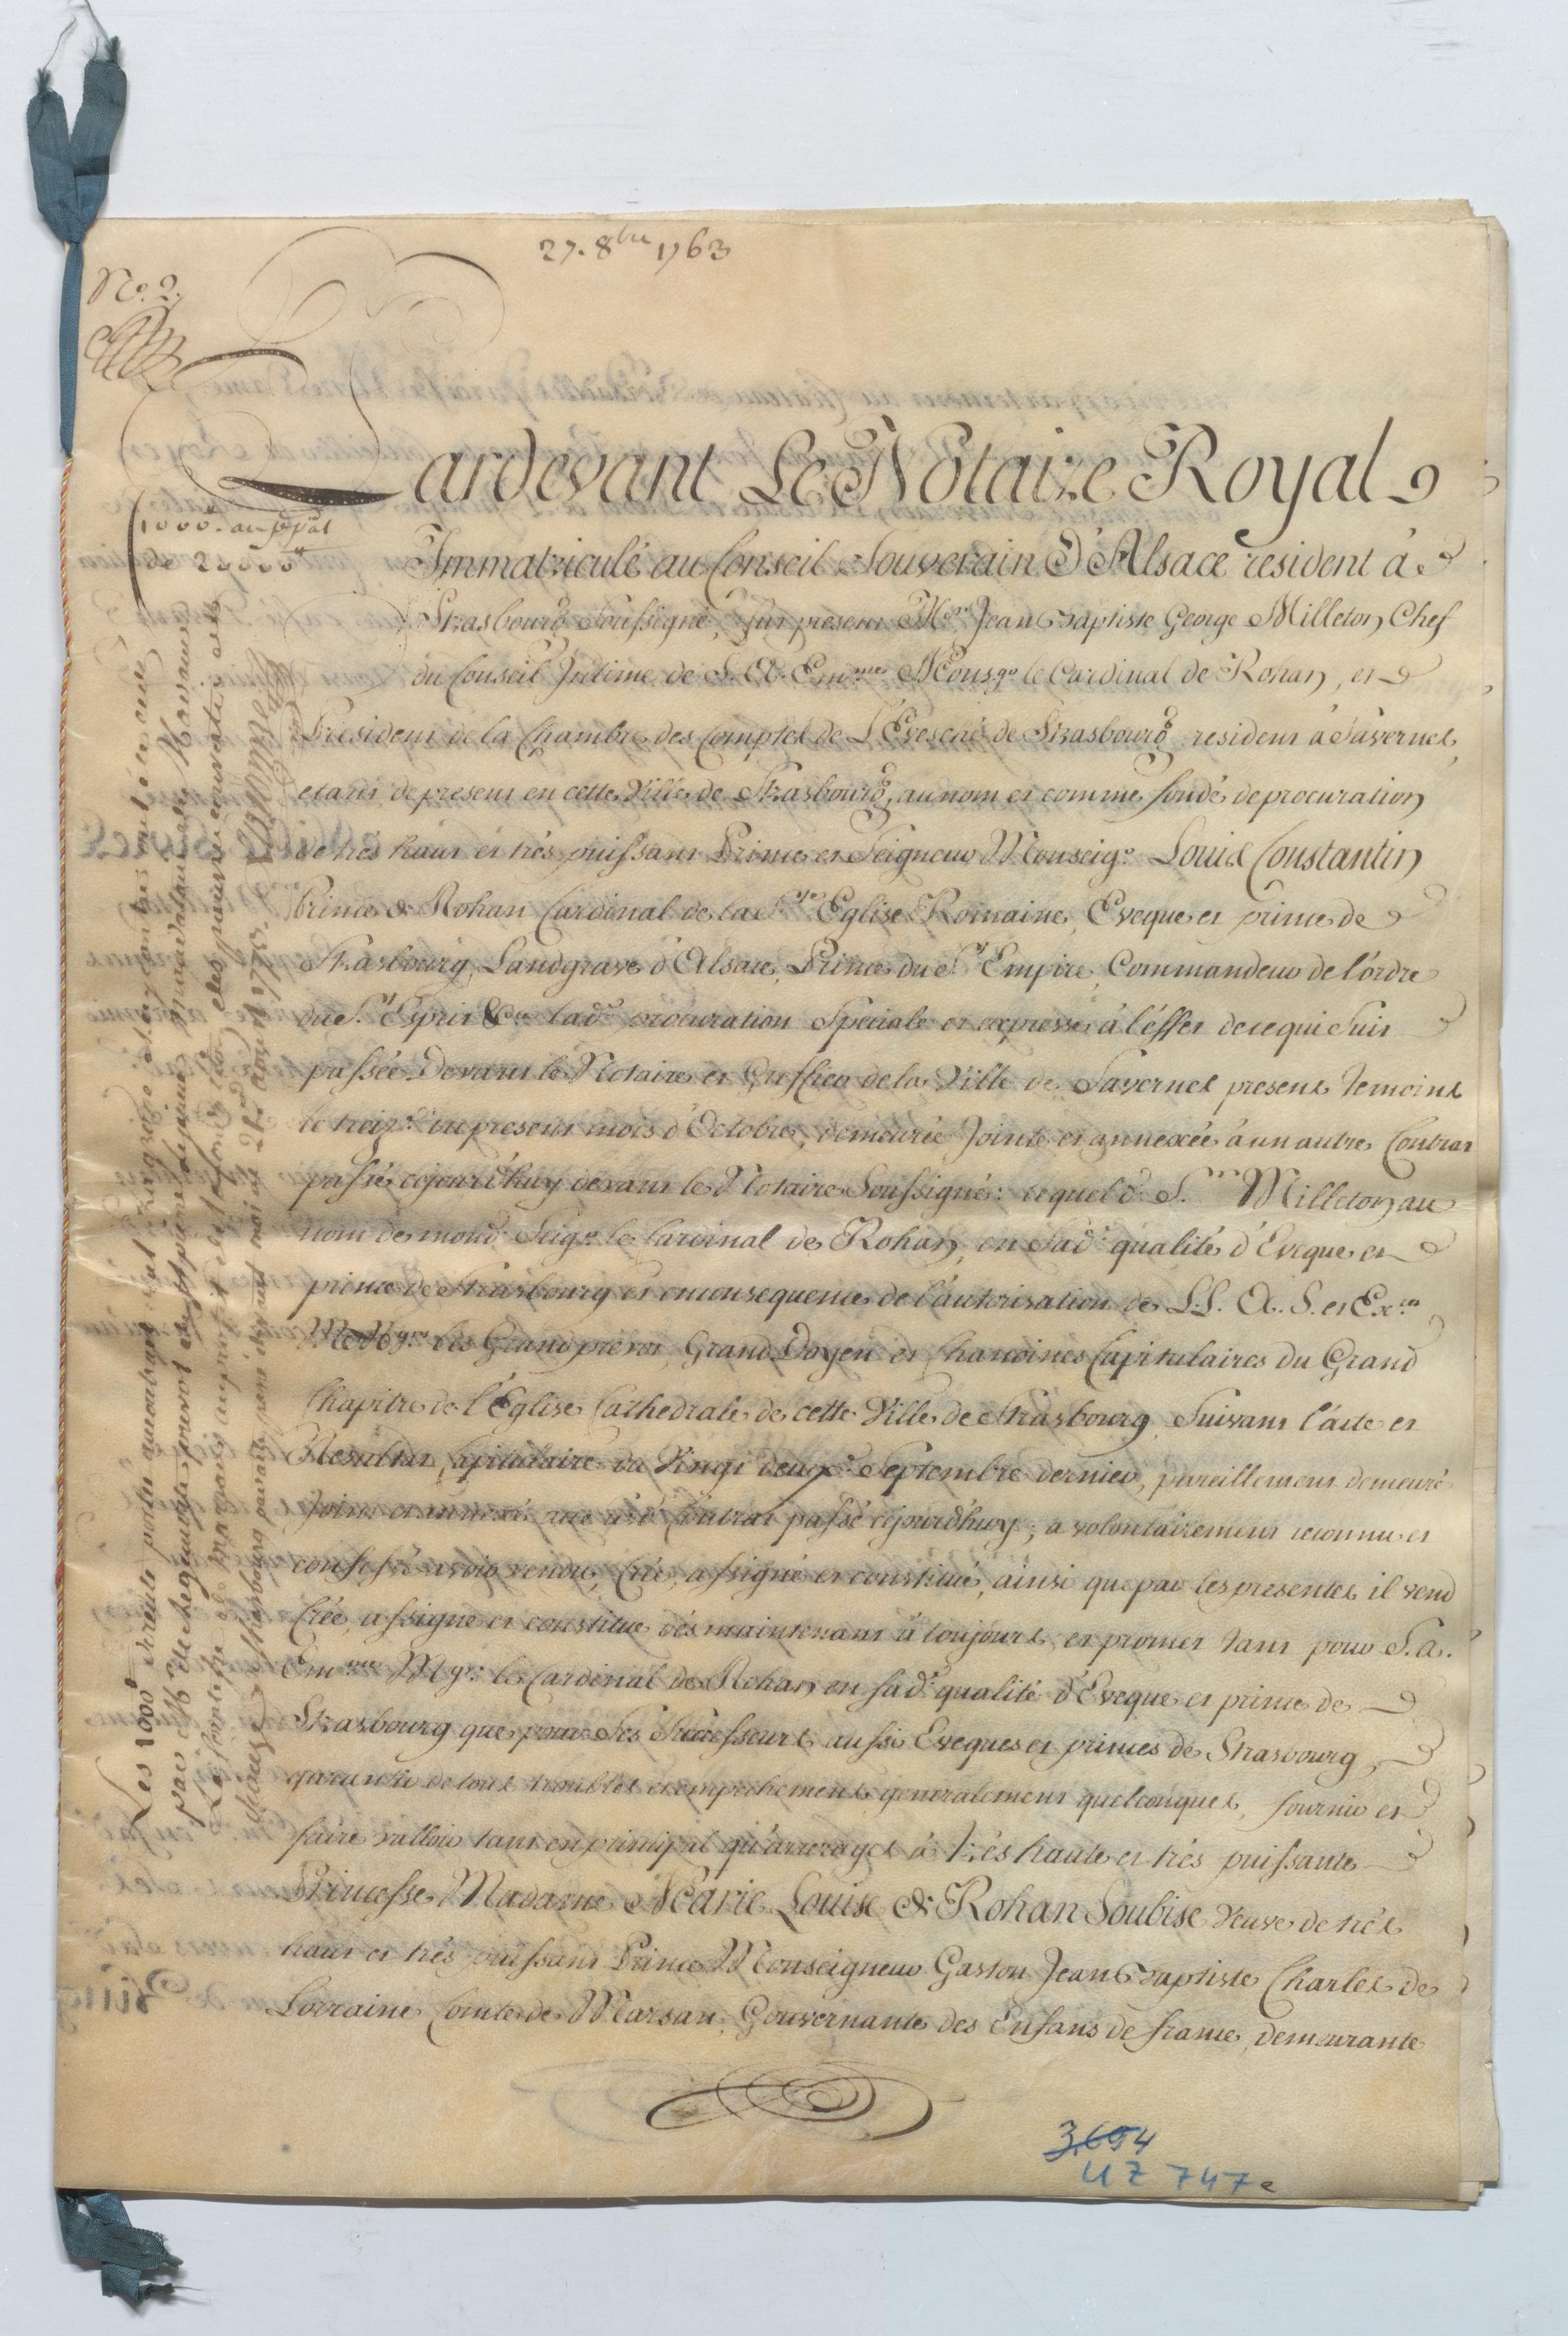 27. 8bre 1763
No. 2.
Pardevant Le Notaire Royal
1000lt au ppal
de 20000lt
Immatriculé au Conseil Souverain d'Alsace resident à
Strasbourg Soussigné, fut present Me. Jean Baptiste George Milleton Chef
du Conseil Intime de S. A. Emme Monsgr le Cardinal de Rohan, et
President de la Chambre des Comptes de L'Evesché de Strasbourg resident à Savernes,
etant de present en cette Ville de Strasbourg, au nom et comme fondé de procuration
de très haut et très puissant Prince et Seigneur Monseigr Louis Constantin
Prince de Rohan Cardinal de la Ste Eglise Romaine, Eveque et prince de
Strasbourg, Landgrave d'Alsace, Prince du St Empire, Commandeur de l'ordre
du St Esprit &ca lade procuration Speciale et expresse à l'effet de ce qui Suit
passée Devant le Notaire et Greffier de la Ville de Savernes presens temoins
le treize du present mois d'Octobre, demeurée Jointe et annexée à un autre Contrat
passé cejourd'huy devant le Notaire Soussigné: lequel d. Sr. Milleton au
nom de mond. Seigr le Cardinal de Rohan, en Sad. qualité d'Eveque et
prince de Strasbourg et en consequence de l'autorisation de L.L. A. S. et Exces
Grand prevot, Grand Doyen et Chanoines Capitulaires du Grand
Chapitre de l'Eglise Cathedrale de cette Ville de Strasbourg Suivant l'acte et
Resultat Capitulaire du Vingt deuxe Septembre dernier, pareillement demeuré
Joint et annexé Contrat passé cejourd'huy; a volontairement reconnu et
confessé avoir vendu, Créé, assigné et constitué, ainsi que par les presentes il vend
Crée, assigne et constitue dès maintenant à toujours, et promet tant pour S. A.
Emme Mgr. le Cardinal de Rohan en sade qualité d'Eveque et prince de
Strasbourg que pour Ses Successeurs aussi Eveques et princes de Strasbourg,
garantir de tous troubles et empechemens generalement quelconques, fournir et
faire valloir tant en principal qu'arrerages à très haute et très puissante
Princesse Madame Marie Louise de Rohan Soubise Veuve de très
haut et très puissant Prince Monseigneur Gaston Jean Baptiste Charles de
Lorraine Comte de Marsan, Gouvernante des Enfans de france, demeurante
Les 1000lt de rente
par
La Comtesse de Marsan
à Strasbourg
3,694
UZ 747e